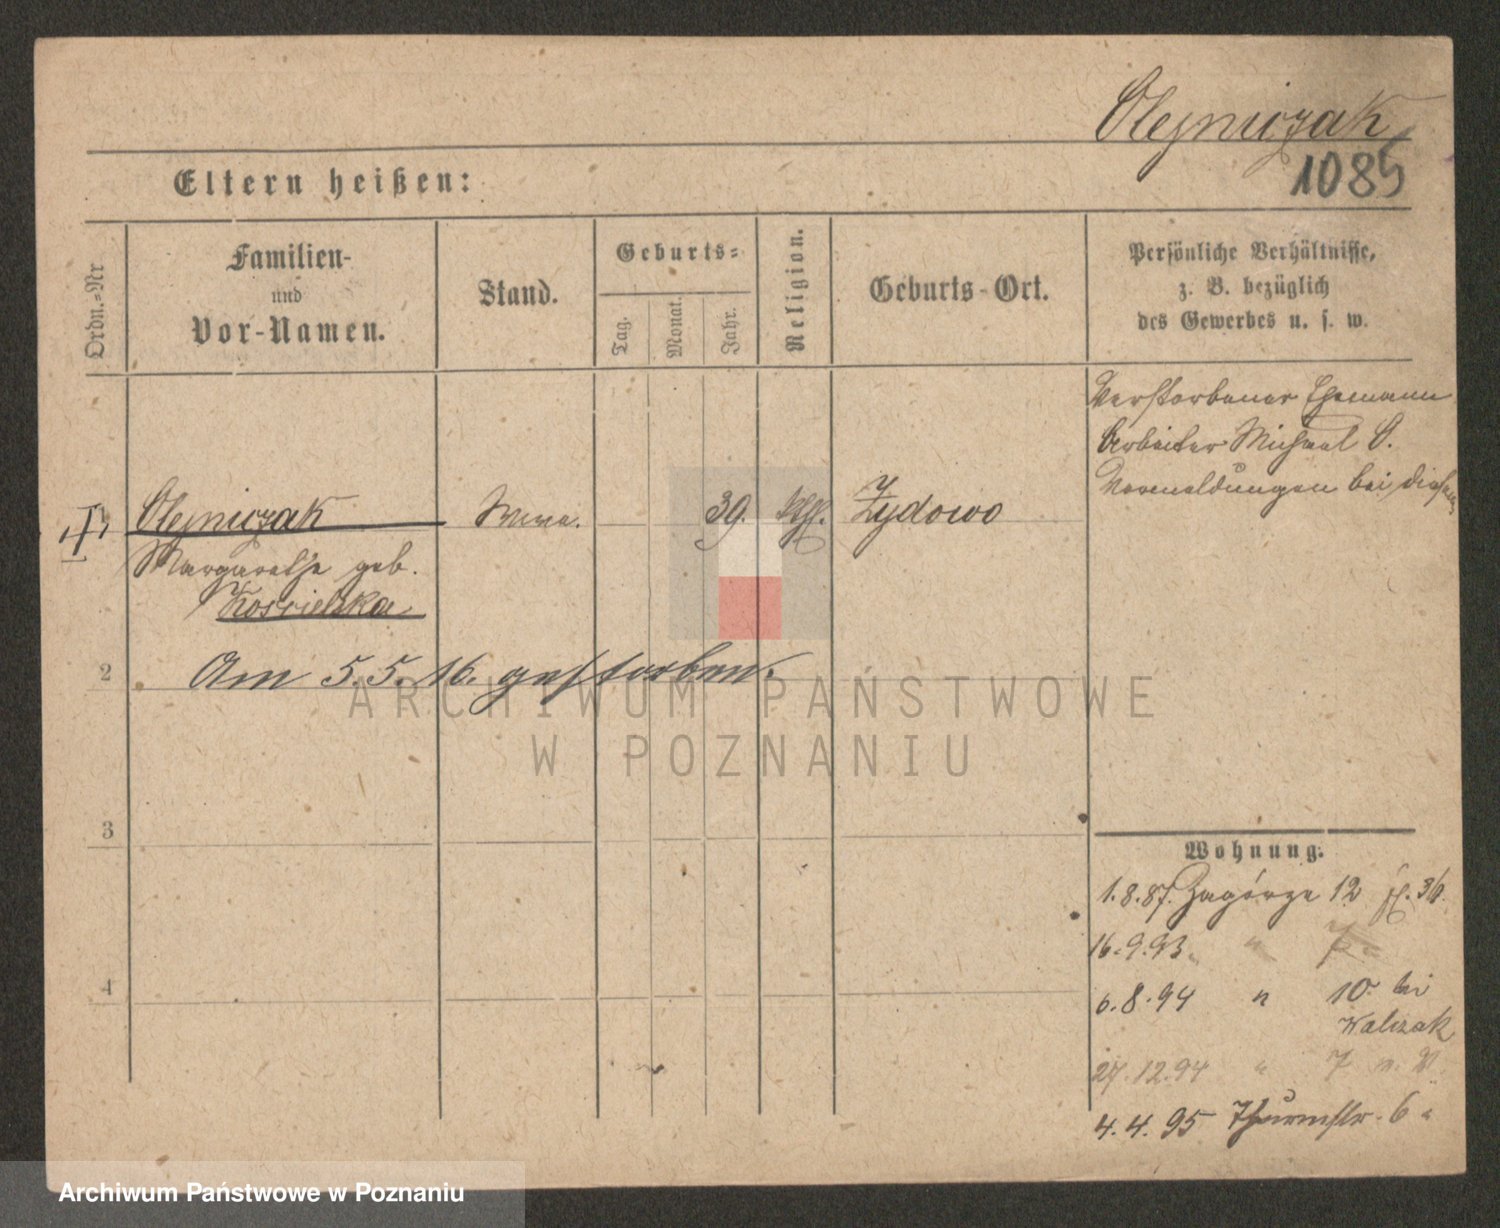 Olejniczak
1085
Eltern heißen:
Ordn.=Nr
Familien-
und
Vor-Namen.
Stand.
Geburts=
Tag.
Monat.
Jahr.
Religion.
Geburts-Ort.
Persönliche Verhältnisse,
z. B. bezüglich
des Gewerbes u. s. w.
Verstorbener Ehemann
Arbeiter Michael O.
Vermeldungen bei diesem
Olejniczak
Wwe.
39.
kath.
Żydowo
Margarethe geb.
Kościelska
2
Am 5.5.16. gestorben.
ARCHIWUM PAŃSTWOWE
W POZNANIU
3
4
Wohnung.
1.8.87. Zagórze 12
16.9.93. "
6.8.94 " 10 bei
Walczak
27.12.94 " 7
4.4.95 Thurmstr. 6
Archiwum Państwowe w Poznaniu